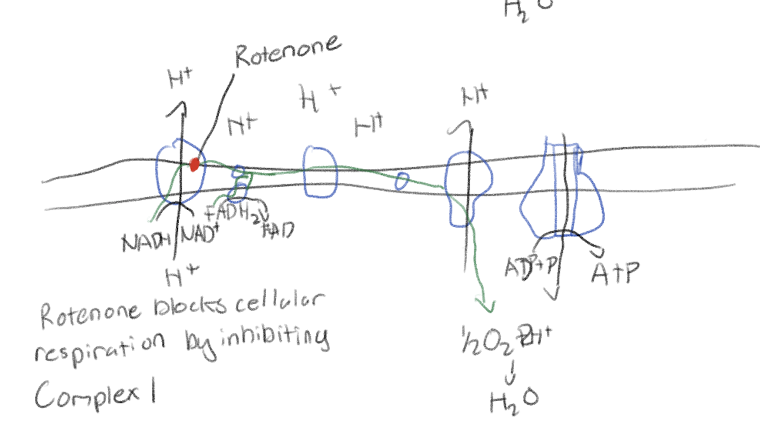 H₂O
Rotenone
H⁺
H⁺
H⁺
H⁺
H⁺
NADH NAD⁺
FADH₂
FAD
H⁺
ADP+P
A+P
Rotenone blocks cellular
respiration by inhibiting
Complex I
½O₂ 2H⁺
H₂O